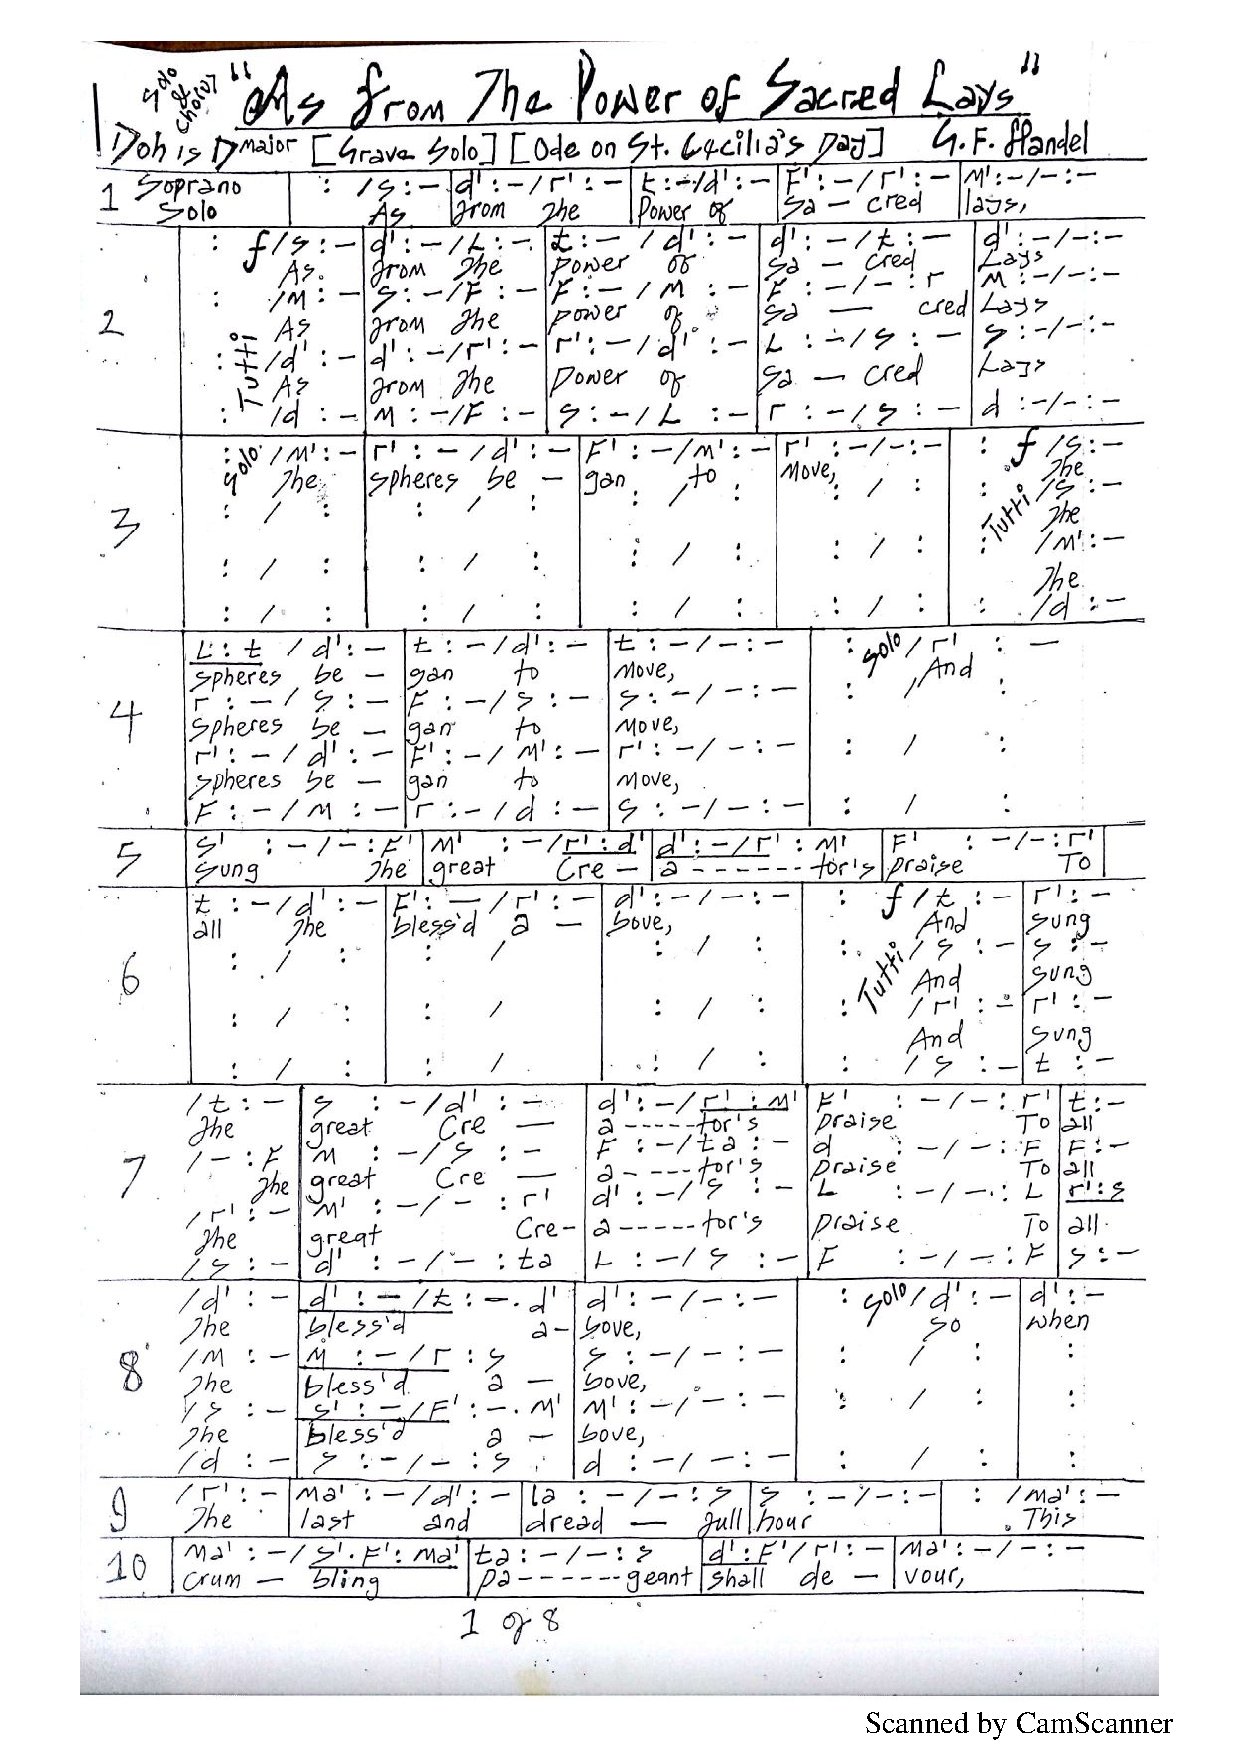 Solo & Chorus
"As from The Power of Sacred Lays"
Doh is D major [Grave Solo] [Ode on St. Cecilia's Day] G. F. Handel
1 Soprano Solo : /s:- d':-/r':- t:-/d':- F':-/r':- M':-/-:-
As from The Power of Sa — cred lays,
2 : f/s:- d':-/L:- t:-/d':- d':-/t:- d':-/-:-
As. from The power of Sa — cred Lays
: /M:- s:-/F:- F:-/M:- F:-/-:r M:-/-:-
As from The power of Sa — cred Lays
Tutti
: /d':- d':-/r':- r':-/d':- L:-/s:- s:-/-:-
As from The Power of Sa — cred Lays
: /d:- M:-/F:- s:-/L:- r:-/s:- d:-/-:-
3 : Solo /M':- r':-/d':- F':-/M':- r':-/-:- : f/s:-
The spheres be — gan to Move, The
: / : : / : : / : : / : : /s:-
Tutti The
: / : : / : : / : : / : : /M':-
The
: / : : / : : / : : / : : /d:-
4 L:t/d':- t:-/d':- t:-/-:- : Solo/r':-
spheres be — gan to Move, And
r:-/s:- F:-/s:- s:-/-:- : / :
Spheres be — gan to Move,
r':-/d':- F':-/M':- r':-/-:- : / :
spheres be — gan to Move,
F:-/M:- r:-/d:- s:-/-:- : / :
5 s':-/-:F' M':-/r':d' d':-/r':M' F':-/-:r'
Sung The great Cre — a - - - - - - tor's praise To
6 t:-/d':- F':-/r':- d':-/-:- : f/t:- r':-
all The bless'd a — bove, And Sung
: / : : / : / : : /s:- s:-
Tutti And Sung
: / : : / : / : : /r':- r':-
And Sung
: / : : / : / : : /s:- t:-
7 /t:- s:-/d':- d':-/r':M' F':-/-:r' t:-
The great Cre — a - - - - - tor's praise To all
/-:F M:-/s:- F:-/ta:- d:-/-:F F:-
The great Cre — a - - - - tor's praise To all
/r':- M':-/-:r' d':-/s:- L:-/-:L r':s
The great Cre- a - - - - - tor's praise To all
/s:- d':-/-:ta L:-/s:- F:-/-:F s:-
8 /d':- d':-/t:-.d' d':-/-:- : Solo/d':- d':-
The bless'd a- bove, So when
/M:- M:-/r:s s:-/-:- : / : :
The bless'd a — bove,
/s:- s':-/F':-.M' M':-/-:- : / : :
The bless'd a — bove,
/d:- s:-/-:s d:-/-:- : / : :
9 /r':- Ma':-/d':- la:-/-:s s:-/-:- : /Ma':-
The last and dread — full hour This
10 Ma':-/s'.F':Ma' ta:-/-:s d':F'/r':- Ma':-/-:-
crum — bling pa - - - - - - geant shall de — vour,
1 of 8
Scanned by CamScanner